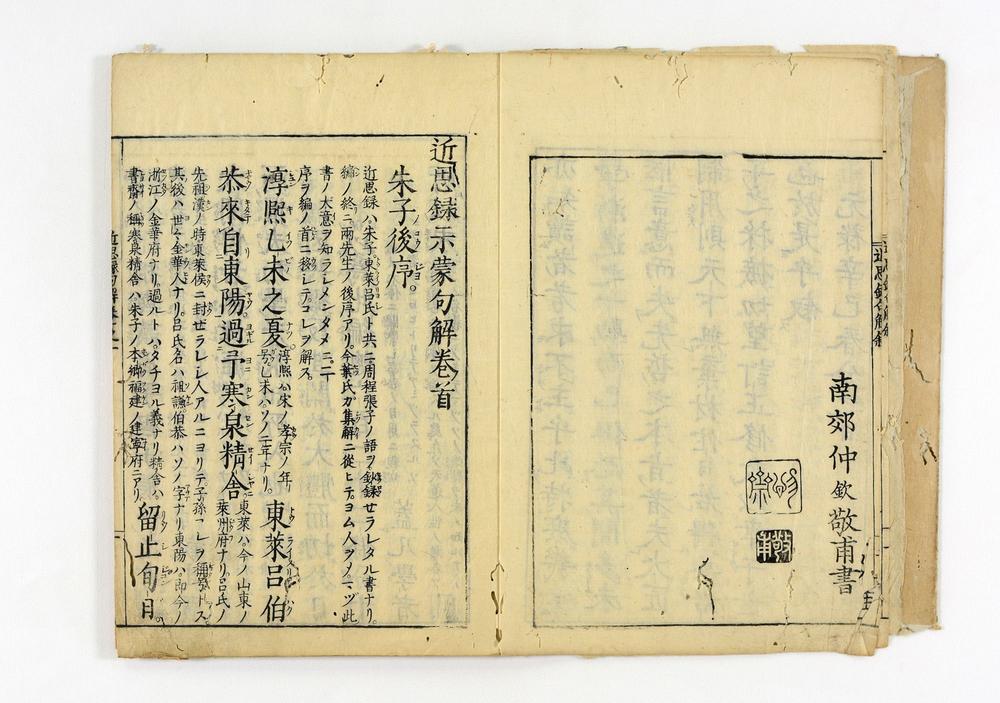 南郊仲欽敬甫書
近思録示蒙句解卷首
朱子後序。
近思録ハ朱子東萊呂氏ト共ニ周程張子ノ語ヲ鈔録セラレタル書ナリ。
編ノ終ニ兩先生ノ後序アリ。今葉氏ガ集解ニ從ヒテ。ヨム人ヲメ。マヅ此
書ノ大意ヲ知ラシメンタメニ。二
序ヲ編ノ首ニ移シテ。コレヲ解ス。
淳熙乙未之夏。淳熙ハ宋ノ孝宗ノ年号。乙未ハソノ二年ナリ。東萊呂伯
恭來自東陽過予寒泉精舎東萊ハ今ノ山東ノ萊州府ナリ。呂氏ノ
先祖漢ノ時東萊侯ニ封ゼラレシ人アルニヨリテ子孫コレヲ稱号トス
其後ハ世々金華人ナリ。呂氏名ハ祖謙伯恭ハソノ字ナリ東陽ハ即今ノ
浙江ノ金華府ナリ。過ルトハ。タチヨル義ナリ精舎ハ
書齋ノ稱寒泉精舎ハ朱子ノ本郷福建ノ建寧府ニアリ。留止旬日。